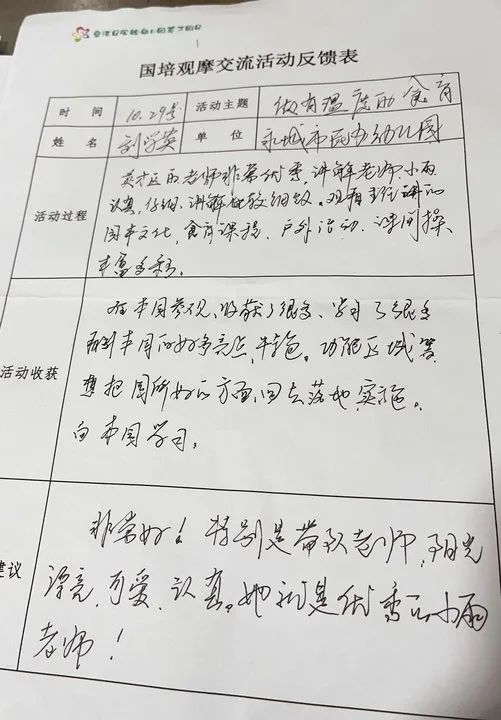 国培观摩交流活动反馈表
时 间 10.29号 活动主题 做有温度的食育
姓 名 刘学英 单 位 永城市民办幼儿园
活动过程
英才区的老师非常优秀，讲解老师小雨
认真，仔细，讲解比较细致。观看主任讲的
园本文化，食育课程，户外活动，课间操
丰富多彩。
活动收获
在本园参观，收获了很多，学习了很多
看到本园的好多亮点，特色。功能区域等
想把园所好的方面，回去落地，实施。
向本园学习。
建议
非常好！特别是带队老师，阳光
漂亮，可爱，认真。她就是优秀的小雨
老师！